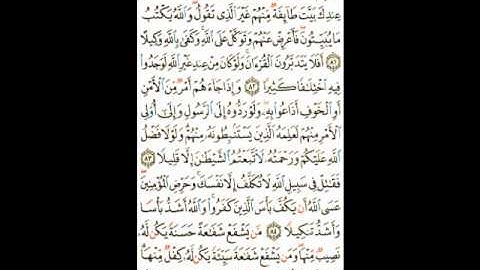 عِندِكَ بَيَّتَ طَآئِفَةٌ مِّنْهُمْ غَيْرَ ٱلَّذِى تَقُولُ وَٱللَّهُ يَكْتُبُ
مَا يُبَيِّتُونَ فَأَعْرِضْ عَنْهُمْ وَتَوَكَّلْ عَلَى ٱللَّهِ وَكَفَىٰ بِٱللَّهِ وَكِيلًا
٨١ أَفَلَا يَتَدَبَّرُونَ ٱلْقُرْءَانَ وَلَوْ كَانَ مِنْ عِندِ غَيْرِ ٱللَّهِ لَوَجَدُوا۟
فِيهِ ٱخْتِلَٰفًا كَثِيرًا ٨٢ وَإِذَا جَآءَهُمْ أَمْرٌ مِّنَ ٱلْأَمْنِ
أَوِ ٱلْخَوْفِ أَذَاعُوا۟ بِهِۦ وَلَوْ رَدُّوهُ إِلَى ٱلرَّسُولِ وَإِلَىٰٓ أُو۟لِى
ٱلْأَمْرِ مِنْهُمْ لَعَلِمَهُ ٱلَّذِينَ يَسْتَنۢبِطُونَهُۥ مِنْهُمْ وَلَوْلَا فَضْلُ
ٱللَّهِ عَلَيْكُمْ وَرَحْمَتُهُۥ لَٱتَّبَعْتُمُ ٱلشَّيْطَٰنَ إِلَّا قَلِيلًا ٨٣
فَقَٰتِلْ فِى سَبِيلِ ٱللَّهِ لَا تُكَلَّفُ إِلَّا نَفْسَكَ وَحَرِّضِ ٱلْمُؤْمِنِينَ
عَسَى ٱللَّهُ أَن يَكُفَّ بَأْسَ ٱلَّذِينَ كَفَرُوا۟ وَٱللَّهُ أَشَدُّ بَأْسًا
وَأَشَدُّ تَنكِيلًا ٨٤ مَّن يَشْفَعْ شَفَٰعَةً حَسَنَةً يَكُن لَّهُۥ
نَصِيبٌ مِّنْهَا وَمَن يَشْفَعْ شَفَٰعَةً سَيِّئَةً يَكُن لَّهُۥ كِفْلٌ مِّنْهَا